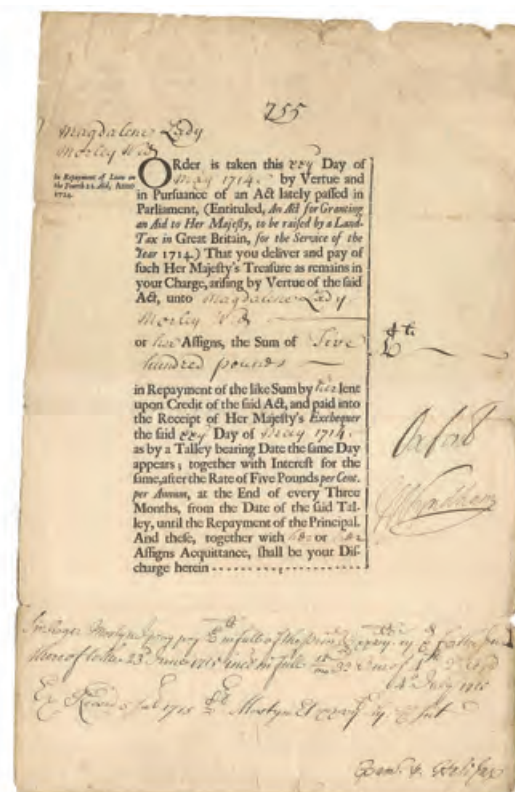 255
Magdalene Lady
Morley Wid
In Repayment of Loan on
the Fourth 22. Aid, Anno
1714.
ORder is taken this xxv Day of
May 1714. by Vertue and
in Pursuance of an Act lately passed in
Parliament, (Entituled, An Act for Granting
an Aid to Her Majesty, to be raised by a Land-
Tax in Great Britain, for the Service of the
Year 1714.) That you deliver and pay of
such Her Majesty's Treasure as remains in
your Charge, arising by Vertue of the said
Act, unto Magdalene Lady
Morley Wid
or her Assigns, the Sum of Five
hundred pounds
in Repayment of the like Sum by her lent
upon Credit of the said Act, and paid into
the Receipt of Her Majesty's Exchequer
the said xxv Day of May 1714.
as by a Talley bearing Date the same Day
appears; together with Interest for the
same, after the Rate of Five Pounds per Cent.
per Annum, at the End of every Three
Months, from the Date of the said Tal-
ley, until the Repayment of the Principal.
And these, together with her or her
Assigns Acquittance, shall be your Dis-
charge herein
Oxford
Wyndham
Roger Mostyn pray pay in full of this
1715 in full
July 1715
1715 Mostyn
Halifax